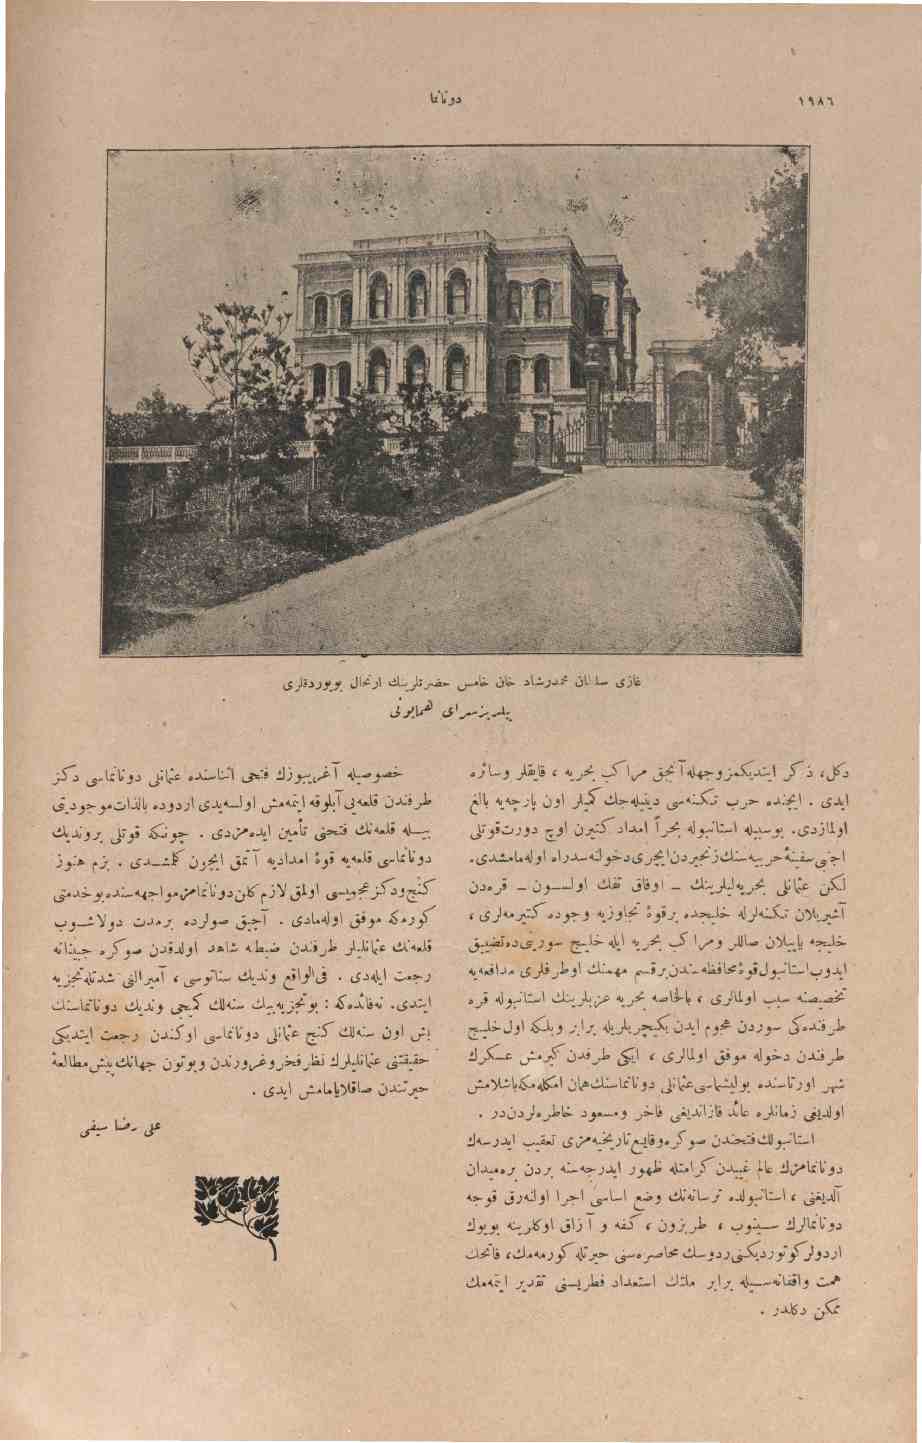 ١٩٨٦
دونانما
غازی سلطان محمدرشاد خان خامس حضرتلرینك ارتحال بویوردقلری
یلدیزسرای همایونی
دكل، ذكر ایتدیكمز وجهله آنجق مراكب بحریه ، قایقلر وسائره
ایدی . ایچنده حرب تكنه‌سی دینیله‌جك كمیلر اون پارچه‌یه بالغ
اولمازدی. بوسبیله استانبوله بحراً امداد كتیرن اوچ دورت قوتلی
اجنبی سفینهٔ حربیه‌سنك زنجیردن ایچری دخولنه سدراه اوله‌مامشدی.
لكن عثمانلی بحریه‌لیلرینك ــ اوفاق تفك اولسون ــ قره‌دن
آشیریلان تكنه‌لرله خلیجده برقوهٔ تجاوزیه وجوده كتیرمه‌لری ،
خلیجه یاپیلان صاللر ومراكب بحریه ایله خلیج سورینی‌ده تضییق
ایدوب استانبول قوهٔ محافظه‌سندن برقسم مهمنك اوطرفلری مدافعه‌یه
تخصیصنه سبب اولمالری ، بالخاصه بحریه عزبلرینك استانبوله قره
طرفنده‌كی سوردن هجوم ایدن یكیچریلریله برابر وبلكه اول خلیج
طرفندن دخوله موفق اولمالری ، ایكی طرفدن كیرمش عسكرك
شهر اورتاسنده بولیشماسی عثمانلی دونانماسنك همان امكله‌مكه باشلامش
اولدیغی زمانلره عائد قازاندیغی فاخر ومسعود خاطره‌لردن‌در .
استانبولك فتحندن صوكره وقایع تاریخیه‌مزی تعقیب ایدرسه‌ك
دونانمامزك عالم غیبدن كرامتله ظهور ایدرجه‌سنه بردن بره میدان
آلدیغنی ، استانبولده ترسانه‌نك وضع اساسی اجرا اولنه‌رق قوجه
دونانمالرك سینوب ، طربزون ، كفه و آزاق اوكلرینه بویوك
اردولر كوتوردیكنی ردوسك محاصره‌سنی حیرتله كورمه‌مك، فاتحك
همت واقفانه‌سیله برابر ملتك استعداد فطریسنی تقدیر ایتمه‌مك
ممكن دكلدر .
خصوصیله آغریبوزك فتحی اثناسنده عثمانلی دونانماسی دكز
طرفندن قلعه‌یی آبلوقه ایتمه‌مش اولسه‌یدی اردوده بالذات موجودیتی
بیله قلعه‌نك فتحنی تأمین ایده‌مزدی . چونكه قوتلی بروندیك
دونانماسی قلعه‌یه قوهٔ امدادیه آتمق ایچون كلمشدی . بزم هنوز
كنج ودكز عجمیسی اولمق لازم كلن دونانمامز مواجهه‌سنده بوخدمتی
كورمكه موفق اوله‌مادی . آچیق صولرده برمدت دولاشوب
قلعه‌نك عثمانلیلر طرفندن ضبطنه شاهد اولدقدن صوكره جبینانه
رجعت ایله‌دی . فی‌الواقع وندیك سناتوسی ، آمیرالنی شدتله تجزیه
ایتدی. نه فائده‌كه : بو تجزیه بیك سنه‌لك كمیجی وندیك دونانماسنك
بش اون سنه‌لك كنج عثمانلی دونانماسی اوكندن رجعت ایتدیكی
حقیقتنی عثمانلیلرك نظر فخر وغروررندن وبوتون جهانك پیش مطالعهٔ
حیرتندن صاقلایامامش ایدی .
علی رضا سیفی